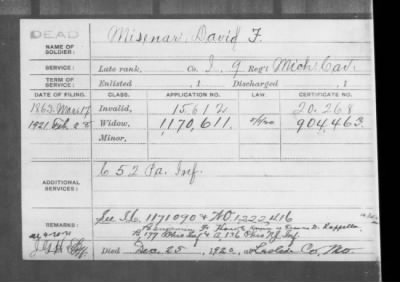 DEAD
NAME OF SOLDIER: Misenar, David F.
SERVICE: Late rank, Co. I, 9 Reg't Mich. Cav.
TERM OF SERVICE: Enlisted , 1 Discharged , 1
DATE OF FILING. CLASS. APPLICATION NO. LAW. CERTIFICATE NO.
1863. Mar. 17 Invalid, 15.612 20.268
1921 Feb. 25 Widow, 1,170,611. 904,463.
Minor,
ADDITIONAL SERVICES: C 52 Pa. Inf.
REMARKS: See 1171090 & WO. 1222416
Benjamin F. Francis D.
B 177 Ohio Inf & A 136 Ohio Inf.
Died Dec. 25, 1920, at Co., Mo.